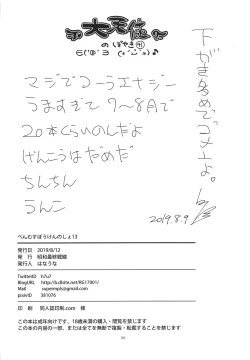 大天使
のぼやき㊶
マジでコーラエナジー
うますぎて 7〜8月で
20本くらいのんだよ
げんこうはだめだ
ちんちん
うんこ
下がき多めでゴメンよ。
2019.8.9
べんむすぼうけんのしょ13
発行日 2019/8/12
発行 昭和最終戦線
発行人 はなうな
TwitterID h7u7
BlogURL http://b.dlsite.net/RG17001/
Mail supermpls@gmail.com
pixivID 381076
印刷 同人誌印刷.com 様
この本は成年向けです。18歳未満の購入・閲覧を禁じます
この本の内容の一部、または全てを無断で複製・転載することを禁じます